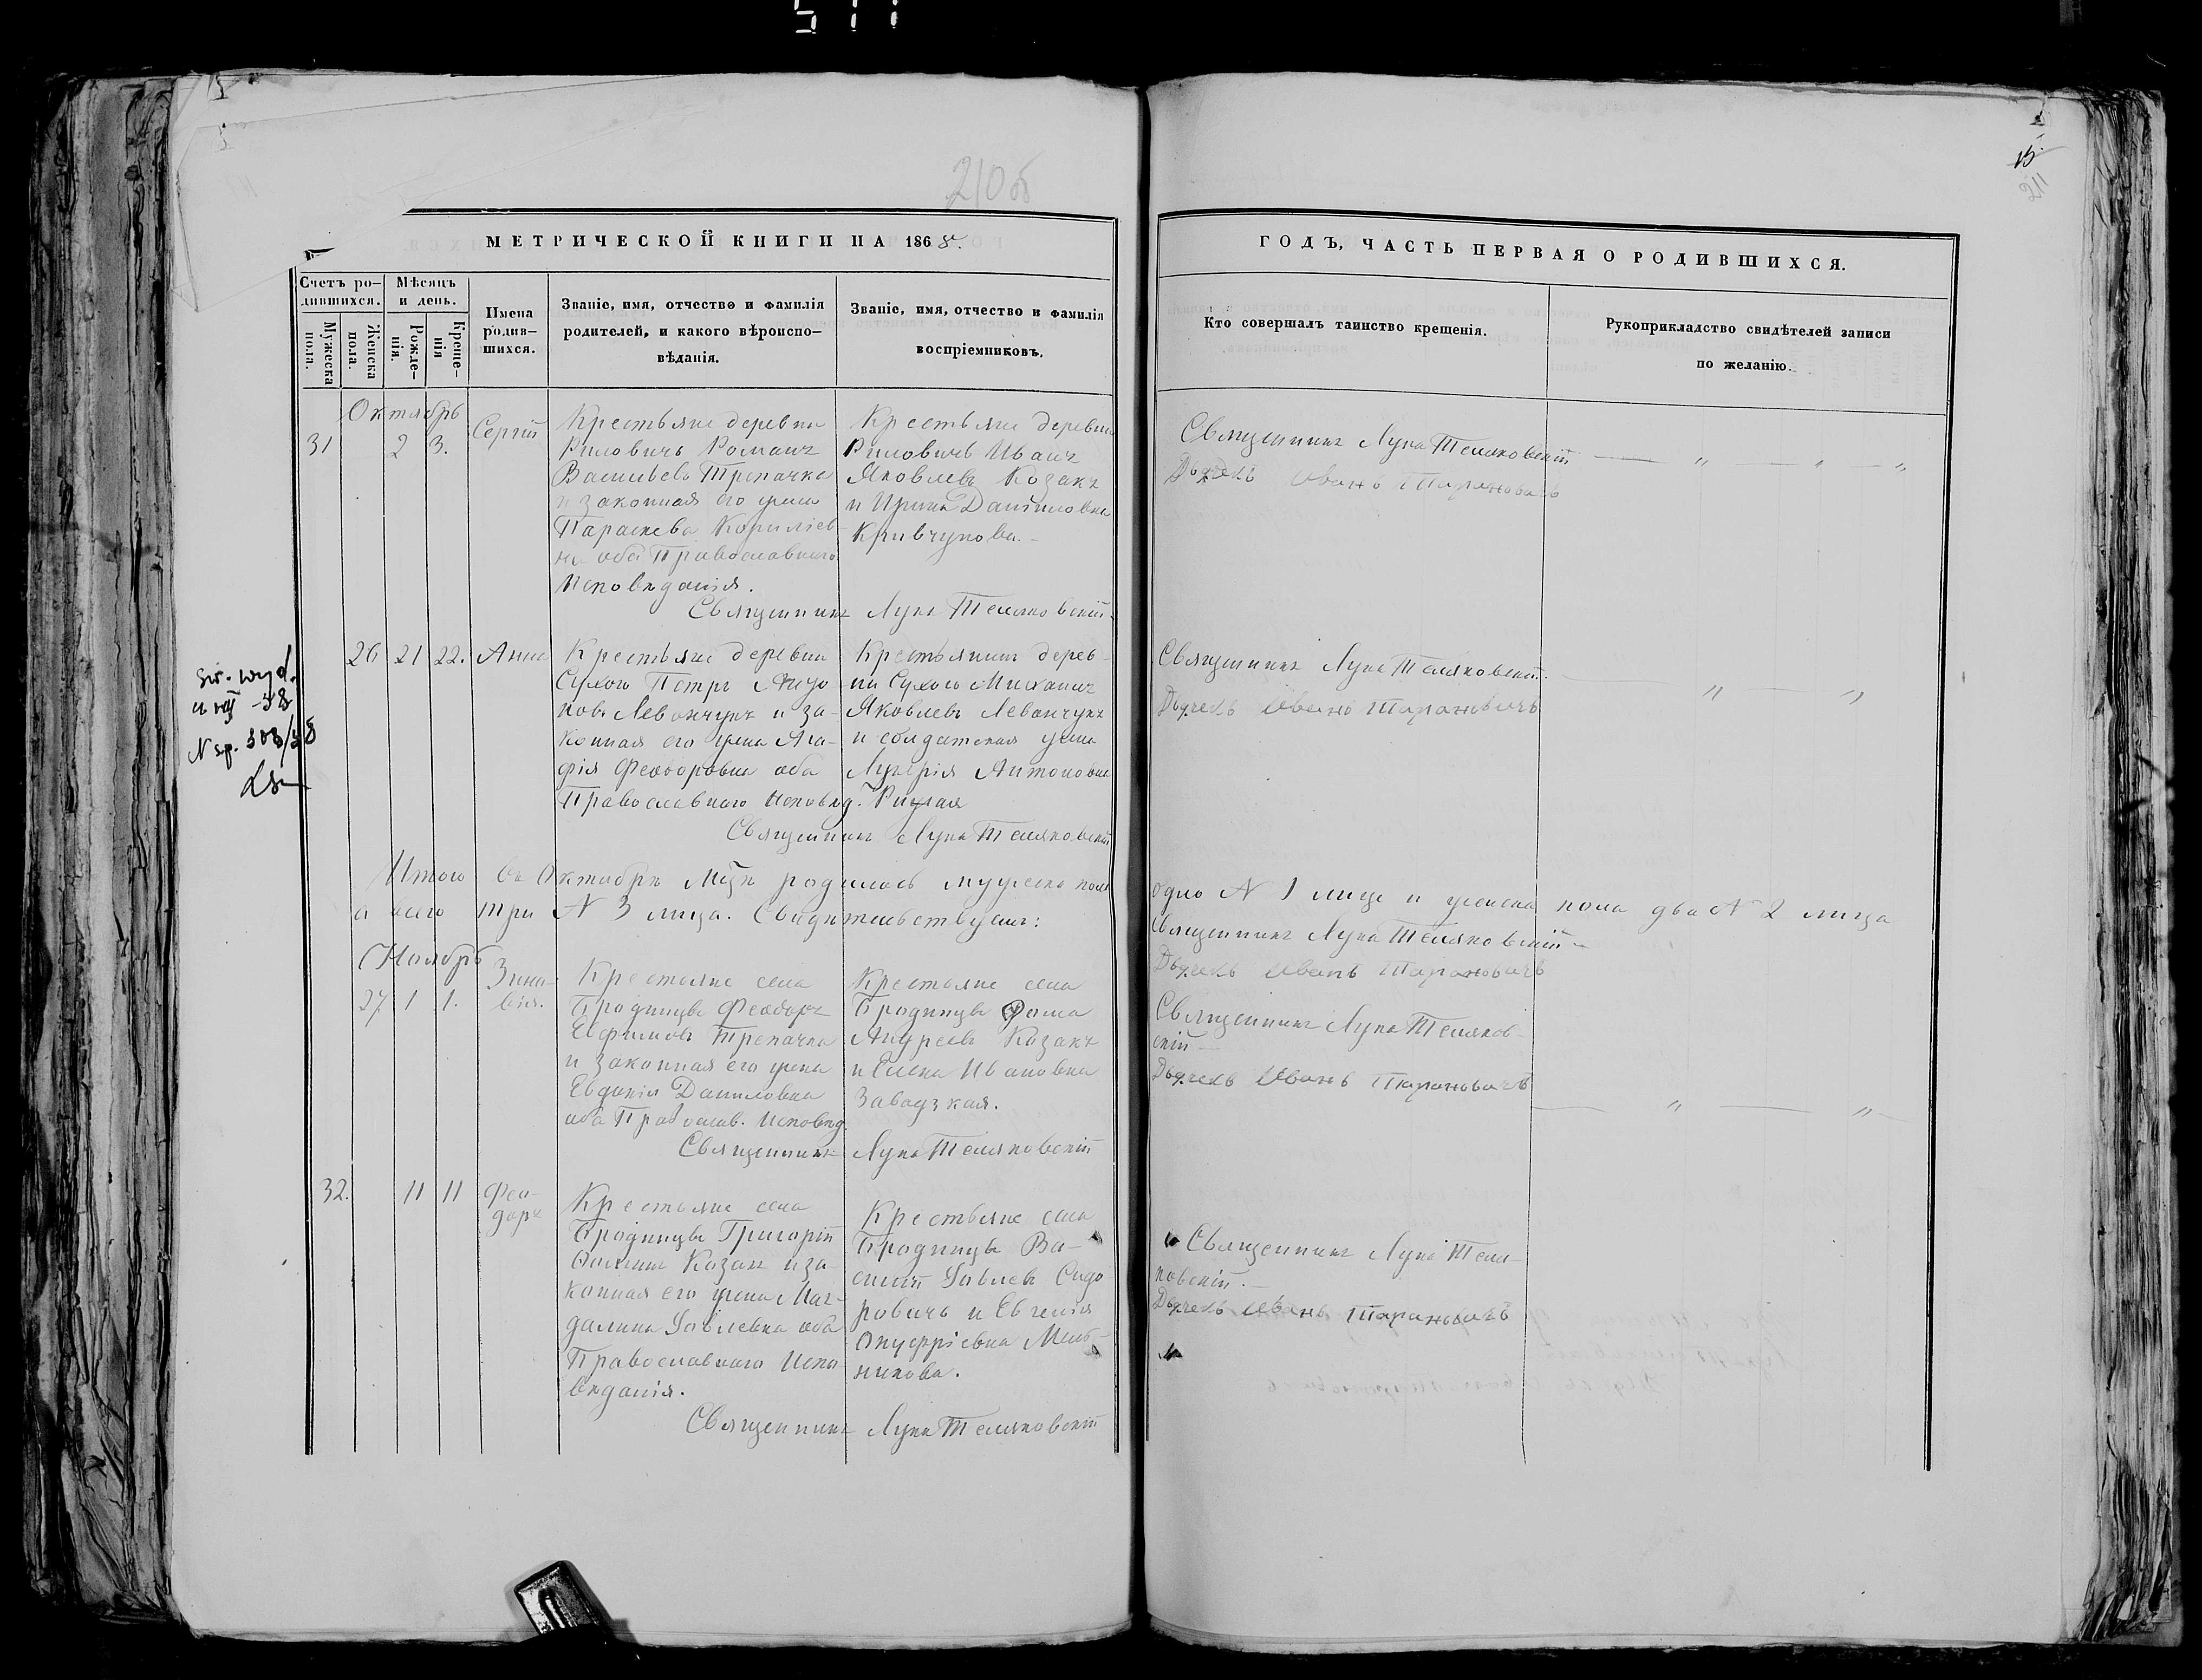 577
210об
15.
211
МЕТРИЧЕСКОЙ КНИГИ НА 1868.
ГОДЪ, ЧАСТЬ ПЕРВАЯ О РОДИВШИХСЯ.
Счетъ ро-
дившихся.
Мужеска
пола.
Женска
пола.
Мѣсяцъ
и день.
Рожде-
нія.
Креще-
нія
Имена
родив-
шихся.
Званіе, имя, отчество и фамилія
родителей, и какого вѣроиспо-
вѣданія.
Званіе, имя, отчество и фамилія
воспріемниковъ.
Кто совершалъ таинство крещенія.
Рукоприкладство свидѣтелей записи
по желанію.
Октябрь
31
2
3.
Сергій
Крестьяне деревни
Риловичъ Романъ
Васильевъ Трепачка
и законная его жена
Параскева Корниліев-
на оба Православнаго
Исповѣданія.
Крестьяне деревни
Риловичъ Иванъ
Яковлевъ Козакъ
и Ирина Даниловна
Кривчукова.-
Священникъ Лука Теляковскій.
Священникъ Лука Теляковскій
Дьячекъ Иванъ Тарановичъ
26
21
22.
Анна
Крестьяне деревни
Сухого Петръ
Левончукъ и за-
конная его жена Ага-
фія Феодоровна оба
Православнаго Исповѣд.
Крестьянинъ дерев-
ни Сухого Михаилъ
Яковлевъ Левончукъ
и солдатская жена
Лукерія Антоновна
Священникъ Лука Теляковскій
Священникъ Лука Теляковскій.
Дьячекъ Иванъ Тарановичъ
Św. wyd.
VIII -38
N sp. 303/38
Итого въ Октябрѣ Мцѣ родилось мужеска пола одно N 1 лице и женска пола два N 2 лица
а всего три N 3 лица. Свидѣтельствуемъ:
Священникъ Лука Теляковскій-
Дьячекъ Иванъ Тарановичъ
Ноябрь
27
1
1.
Зино-
вія.
Крестьяне села
Бродницы Феодоръ
Евфимовъ Трепачка
и законная его жена
Евдокія Даниловна
оба Православ. Исповѣд.
Крестьяне села
Бродницы Фома
Андреевъ Козакъ
и Елена Ивановна
Завадзкая.
Священникъ Лука Теляковскій
Священникъ Лука Теляков-
скій-
Дьячекъ Иванъ Тарановичъ
32.
11
11
Фео-
доръ
Крестьяне села
Бродницы Григорій
Козакъ и за-
конная его жена Маг-
далина Іовлевна оба
Православнаго Испо-
вѣданія.
Крестьяне села
Бродницы Ва-
силій Іовлевъ Сидо-
ровичъ и Евгенія
Онуфріевна Мель-
никова.
Священникъ Лука Теляковскій
Священникъ Лука Теля-
ковскій.-
Дьячекъ Иванъ Тарановичъ